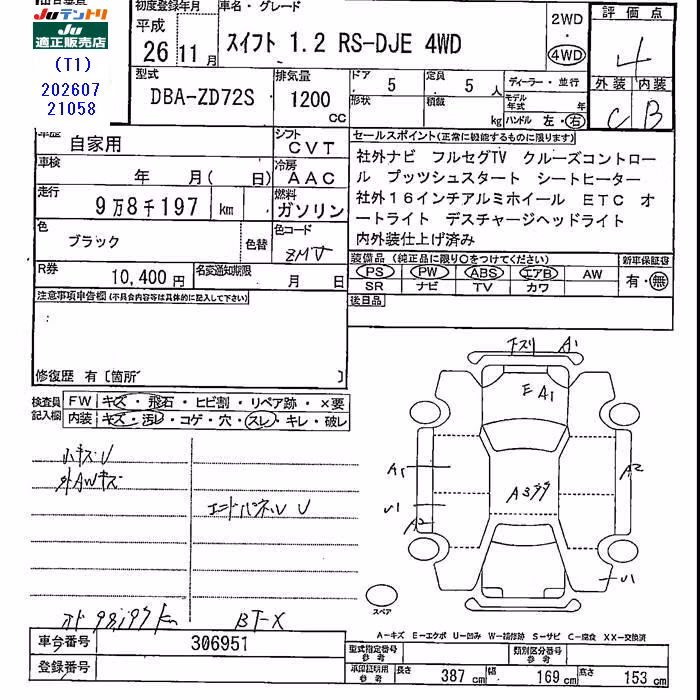 Juテントリ
JU適正販売店
(T1)
202607
21058
初度登録年月
平成
26 11月
車名・グレード
スイフト 1.2 RS-DJE 4WD
2WD
・
4WD
評価点
4
外装 内装
C B
型式
DBA-ZD72S
排気量
1200
cc
ドア 5
定員 5 人
形状
積載 kg
ディーラー・並行
モデル年式 年
ハンドル 左・右
車歴
自家用
シフト
CVT
車検
年 月( 日)
冷房
AAC
走行
9万8千197 km
燃料
ガソリン
色
ブラック
色替
色コード
ZMV
R券
10,400円
名変通知期限
月 日
セールスポイント(正常に機能するものに限ります)
社外ナビ フルセグTV クルーズコントロー
ル プッツシュスタート シートヒーター
社外16インチアルミホイール ETC オ
ートライト デスチャージヘッドライト
内外装仕上げ済み
装備品(純正品に限り○をつけてください)
PS PW ABS エアB AW
SR ナビ TV カワ
新車保証書
有・無
後日品
注意事項申告欄(不具合内容等は具体的に記入して下さい)
修復歴 有〔箇所 〕
検査員記入欄
FW キズ・飛石・ヒビ割・リペア跡・×要
内装 キズ・汚レ・コゲ・穴・スレ・キレ・破レ
小キズU
外AWキズ
エンドパネルU
98,197km
BT-X
下スリ A1
E A1
A1
A2
U1
A2
U1
スペア
A－キズ E－エクボ U－凹み W－補修跡 S－サビ C－腐食 XX－交換済
車台番号
306951
登録番号
型式指定番号
参考
類別区分番号
参考
承印証明用
参考
長さ 387 cm
幅 169 cm
高さ 153 cm